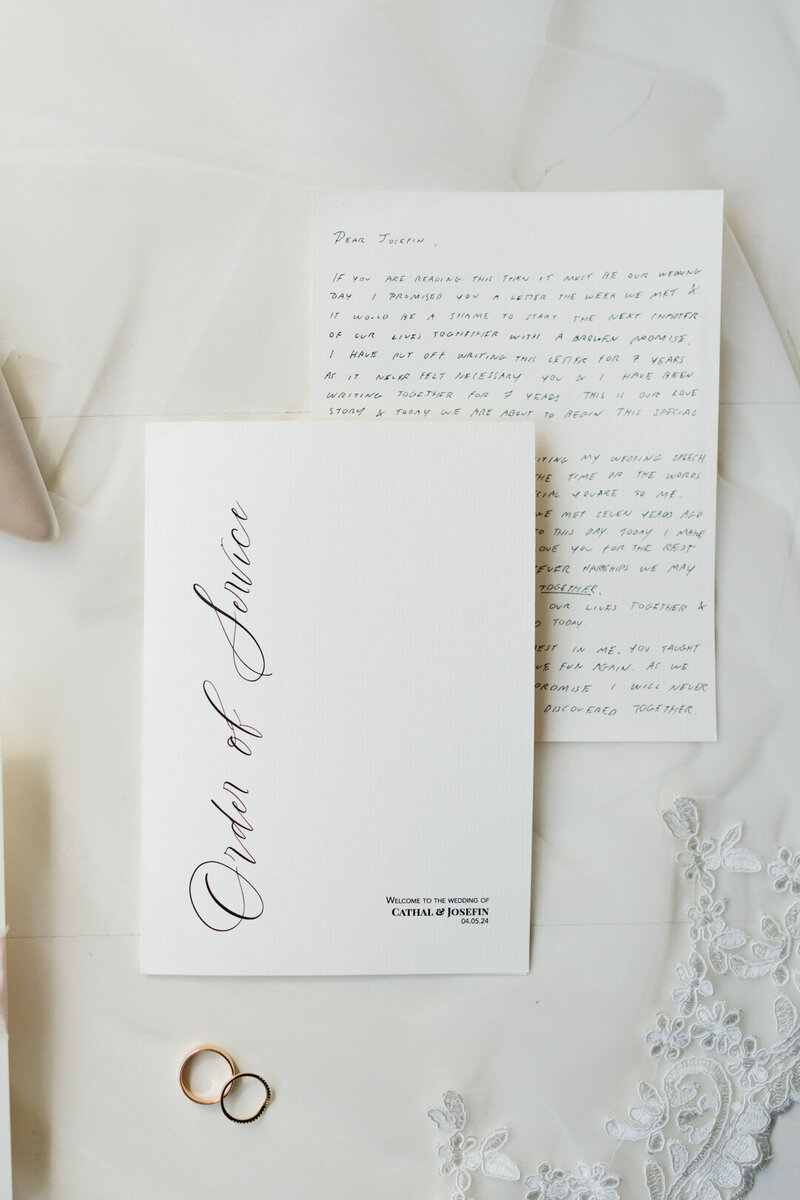 DEAR JOSEFIN,
IF YOU ARE READING THIS THEN IT MUST BE OUR WEDDING
DAY. I PROMISED YOU A LETTER THE WEEK WE MET &
IT WOULD BE A SHAME TO START THE NEXT CHAPTER
OF OUR LIVES WITH A BROKEN PROMISE.
I HAVE PUT OFF WRITING THIS LETTER FOR 7 YEARS
AS IT NEVER FELT NECESSARY. YOU & I HAVE BEEN
WRITING TOGETHER FOR 7 YEARS. THIS IS OUR LOVE
STORY & TODAY WE ARE ABOUT TO BEGIN THIS SPECIAL
ITING MY WEDDING SPEECH
THE TIME OR THE WORDS
CIAL YOU ARE TO ME.
WE MET SEVEN YEARS AGO
O THIS DAY. TODAY I MAKE
OVE YOU FOR THE REST
EVER HARDSHIPS WE MAY
TOGETHER.
OUR LIVES TOGETHER &
D TODAY.
BEST IN ME. YOU TAUGHT
VE FUN AGAIN. AS WE
PROMISE I WILL NEVER
DISCOVERED TOGETHER.
Order of Service
WELCOME TO THE WEDDING OF
CATHAL & JOSEFIN
04.05.24